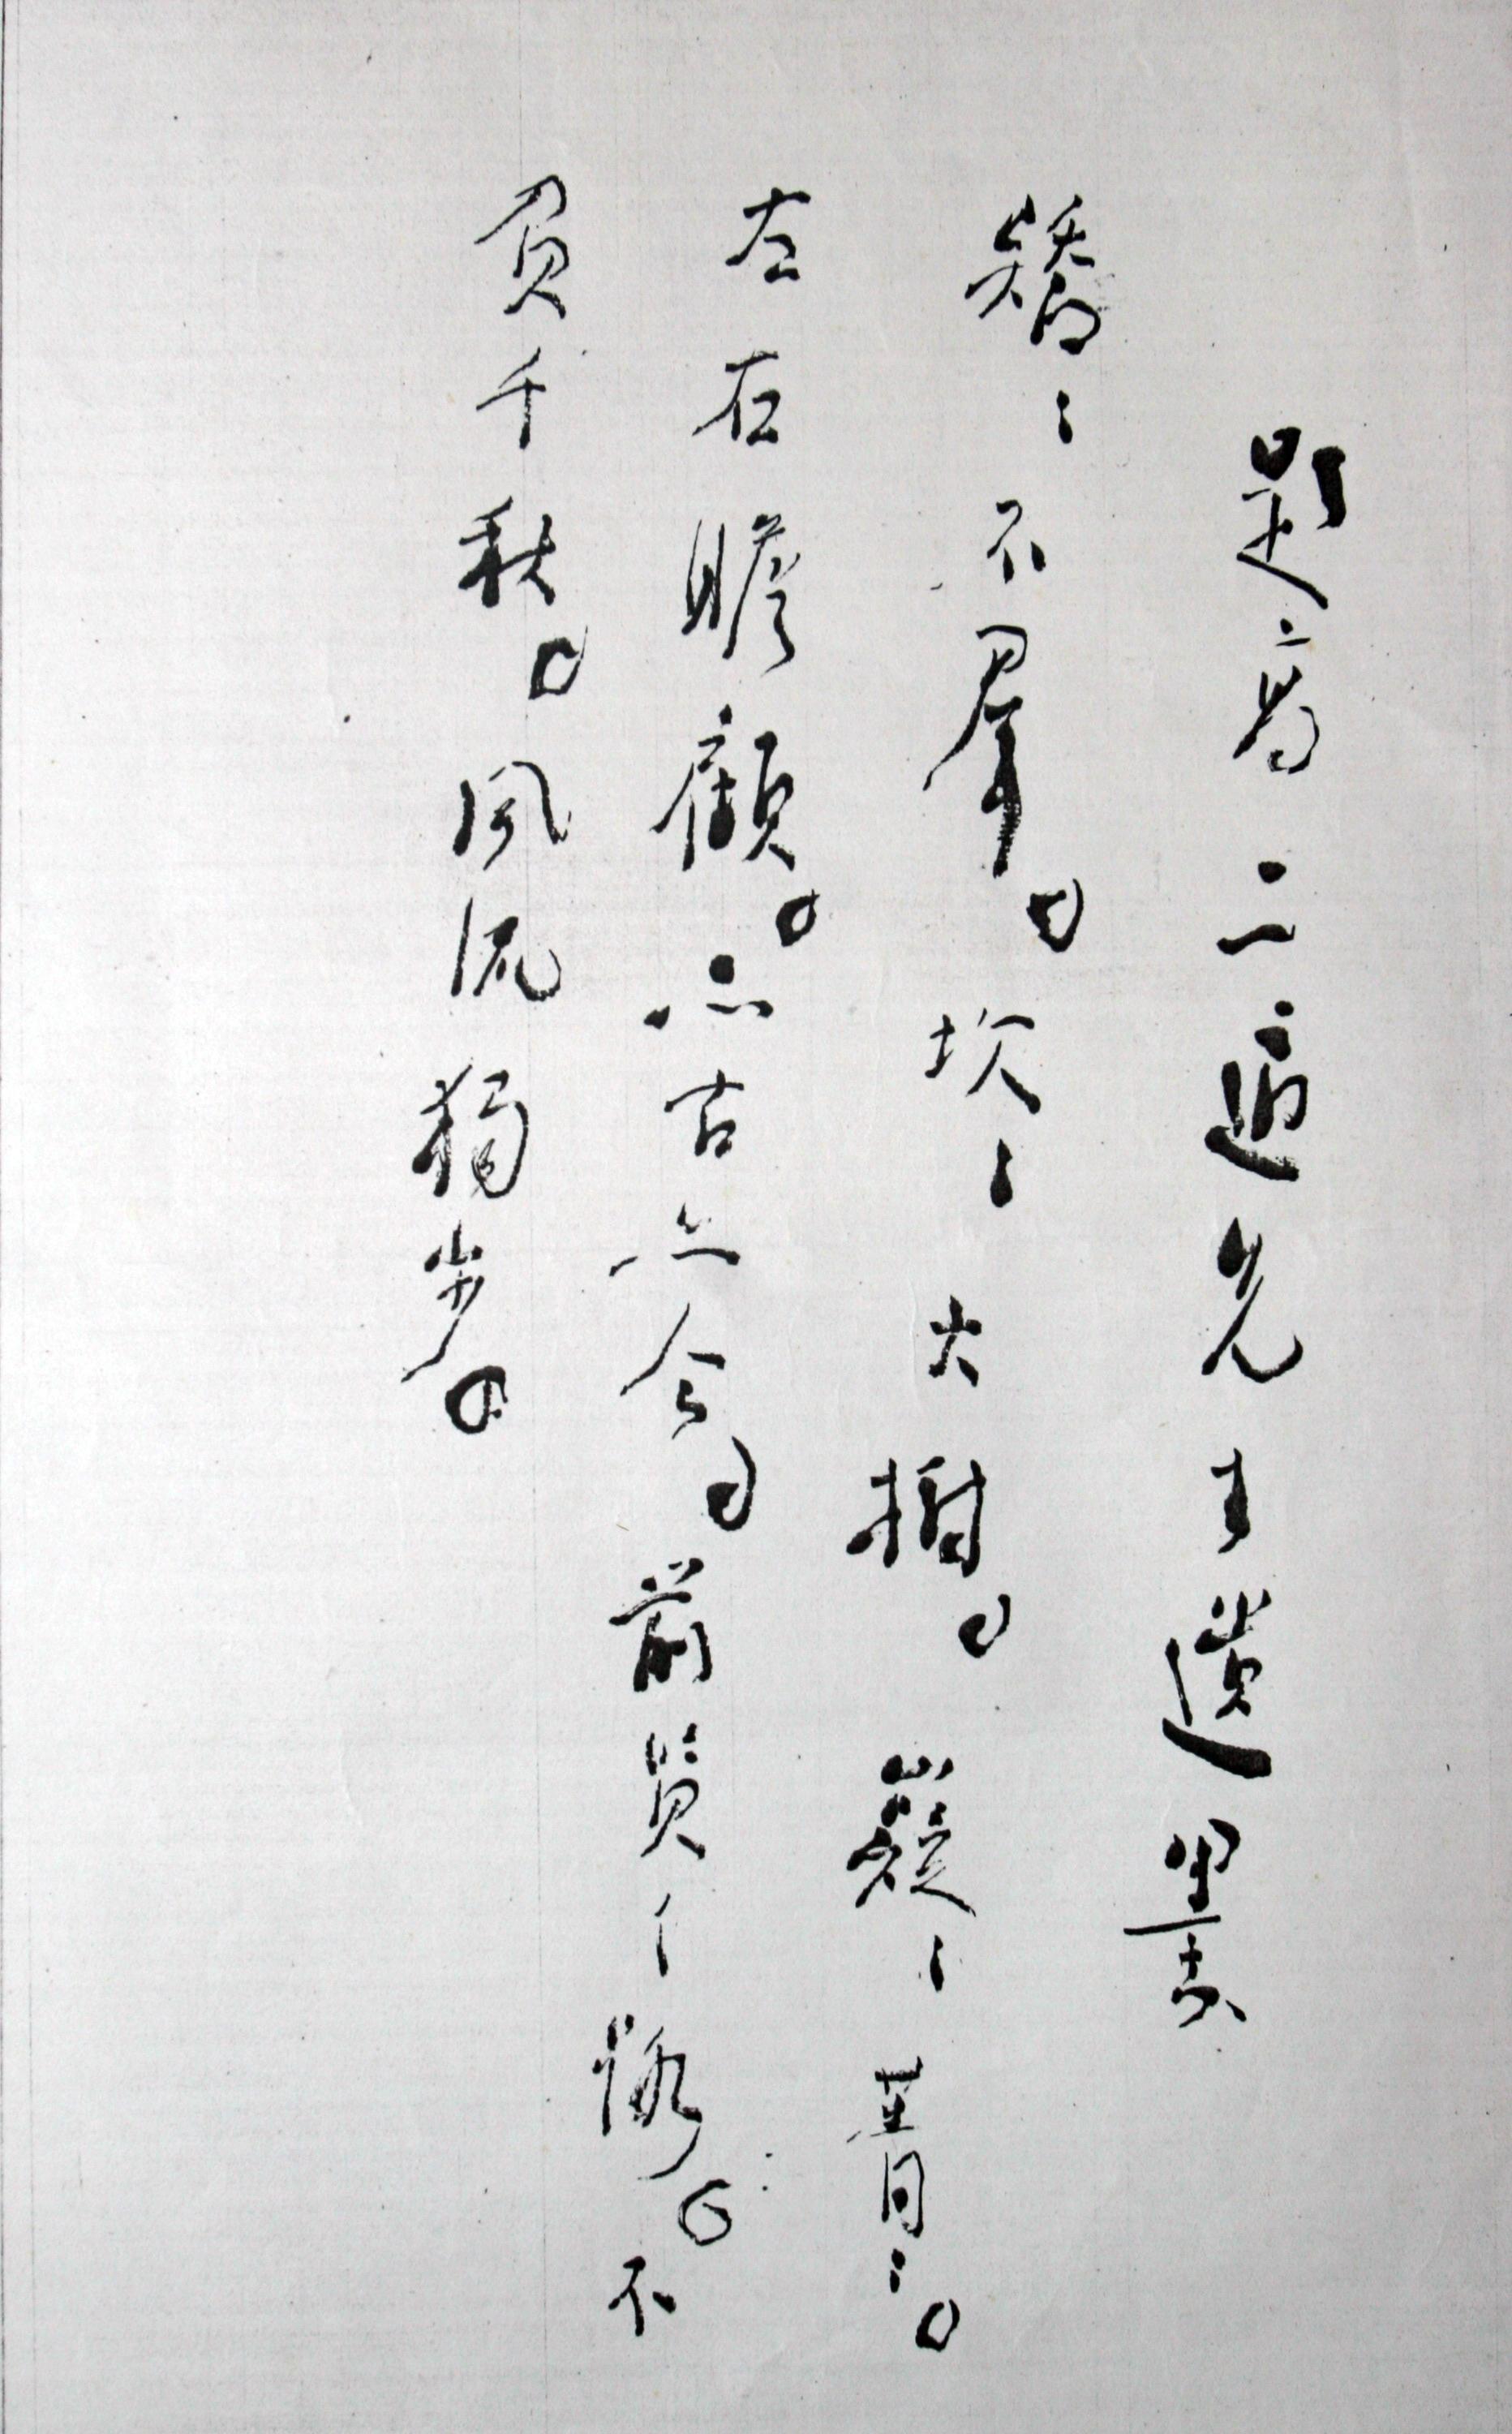 題高二適先生遺墨
矯々不羣。坎々大樹。嶷々菁々。
左右瞻顧。亦古亦今。前賢之路。不
負千秋。風流獨步。